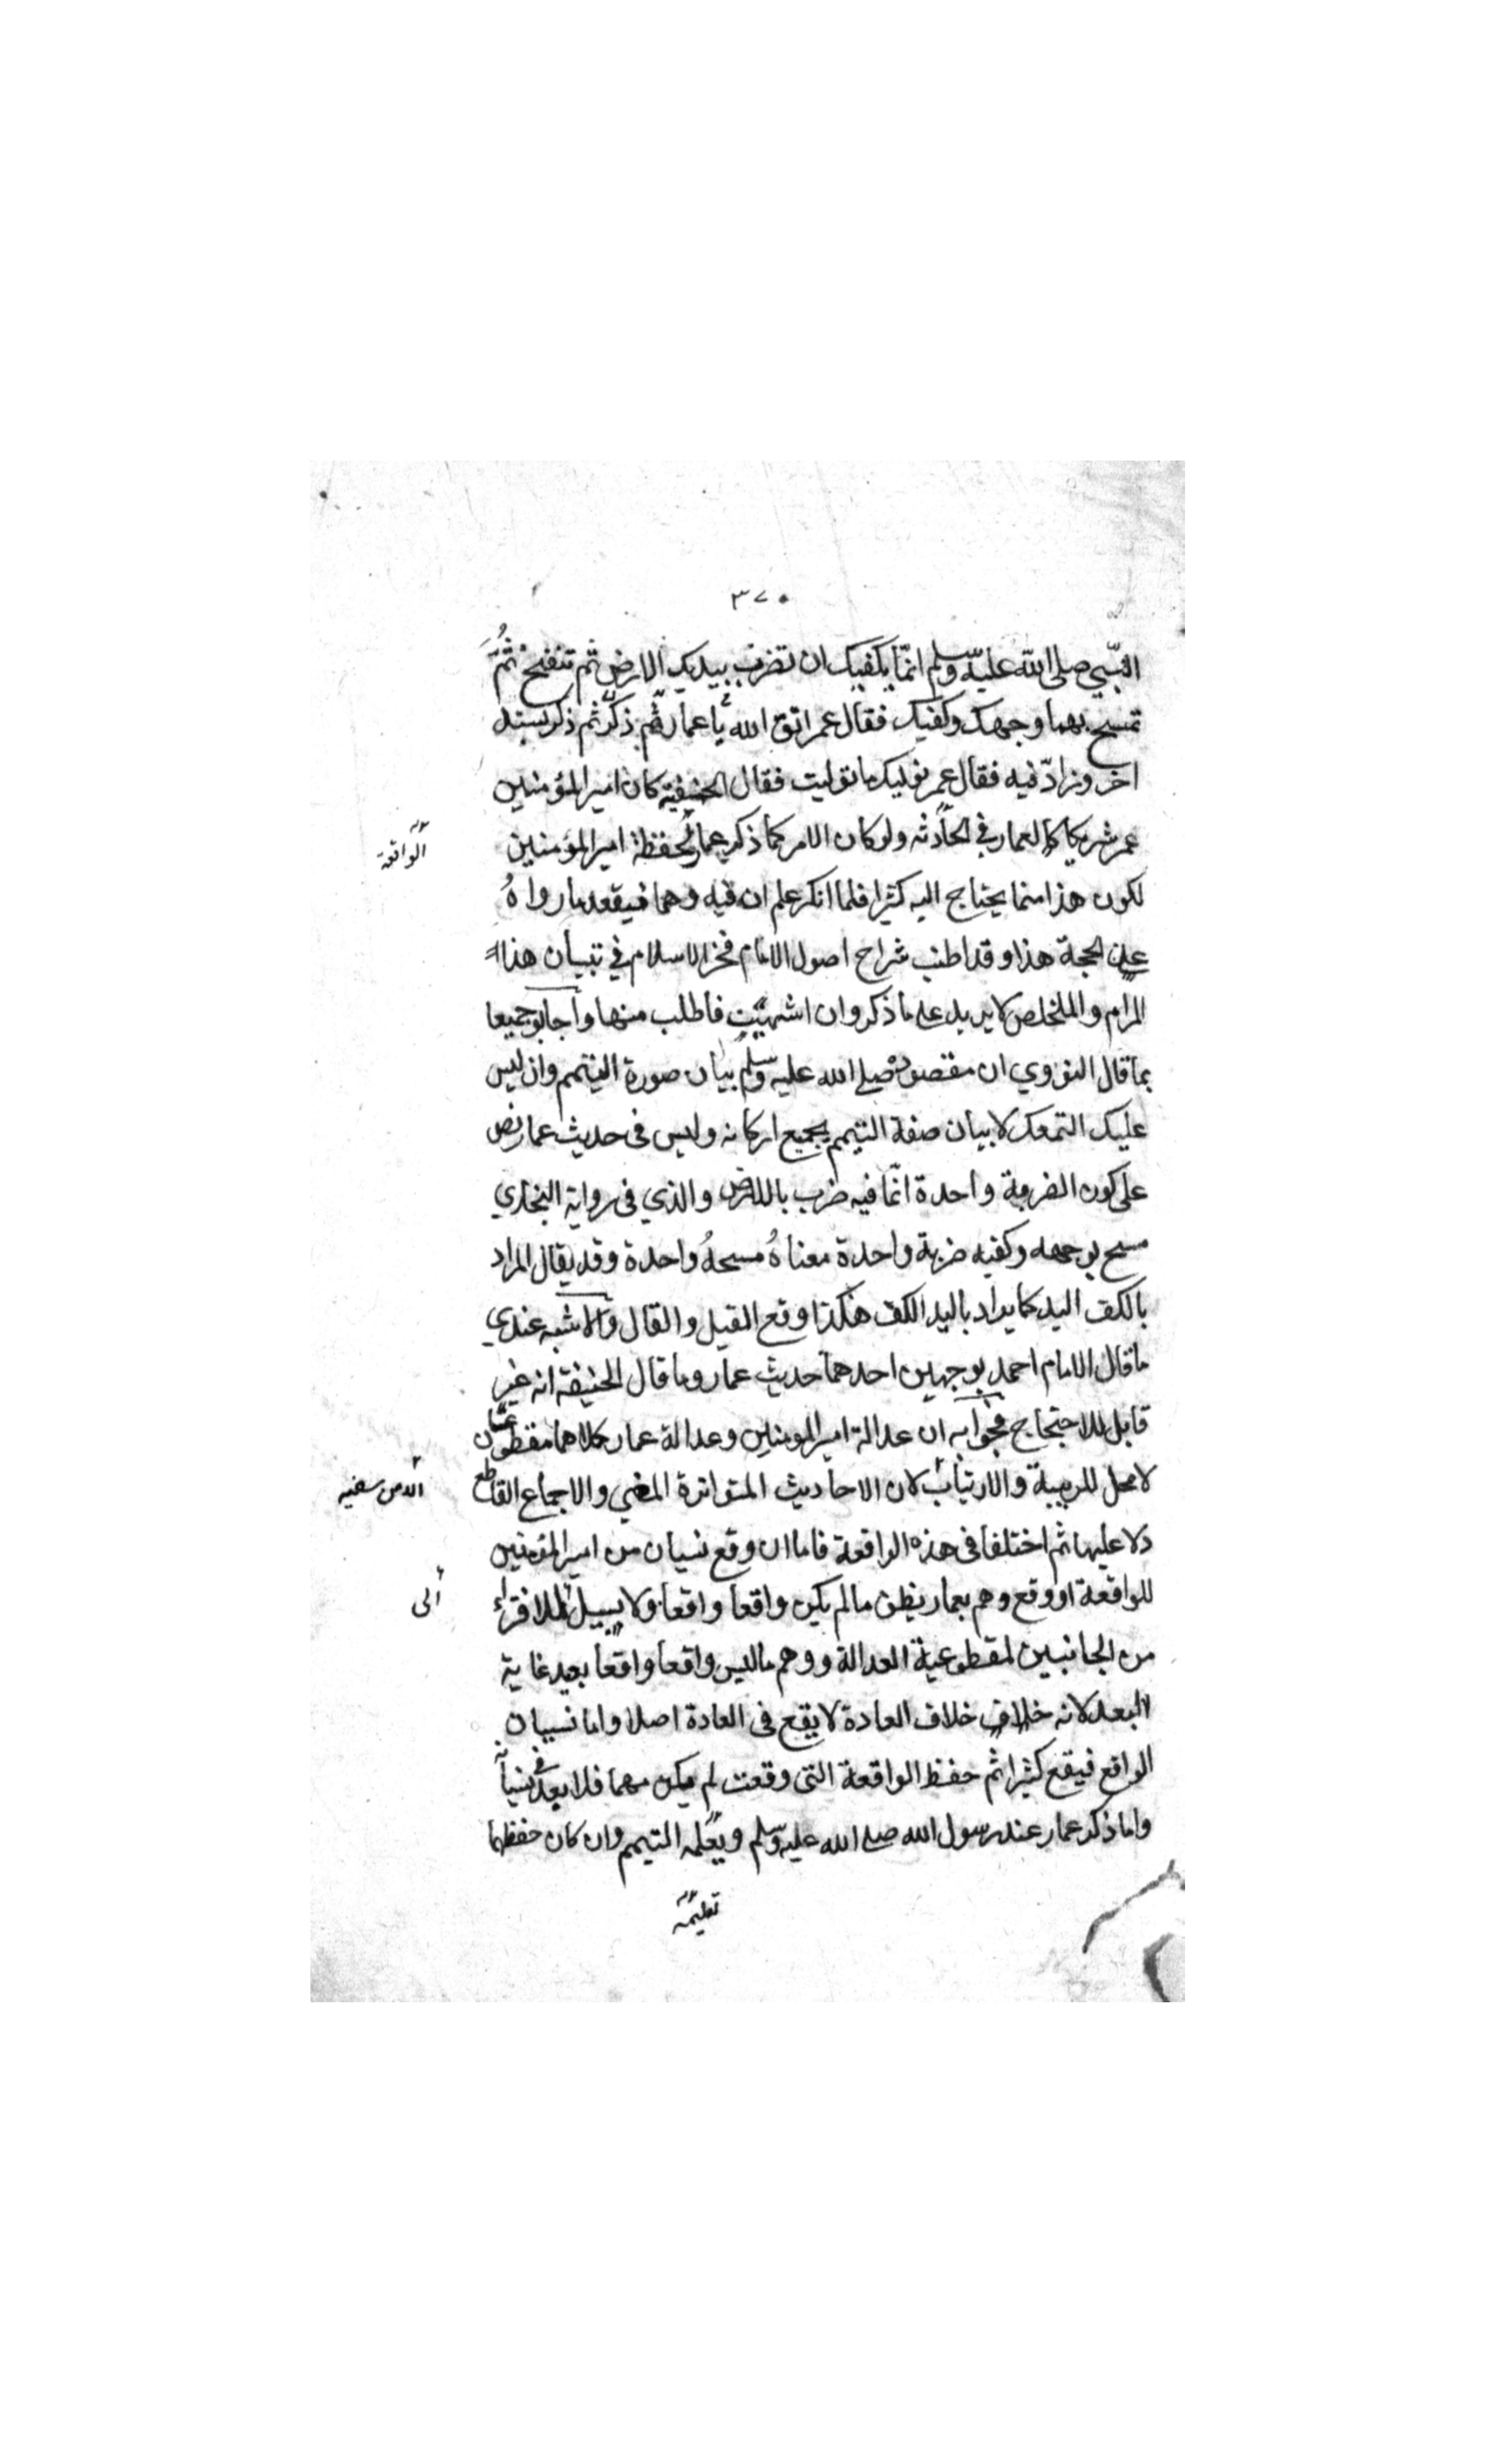 ٣٧٠
النبي صلى الله عليه وسلم انما يكفيك ان تضرب بيديك الارض ثم تنفخ ثم
تمسح بهما وجهك وكفيك فقال عمر اتق الله يا عمار ثم ذكر ثم ذكر بسند
اخر وزاد فيه فقال عمر نوليك ما توليت فقال الحنيفية كان امير المؤمنين
عمر شريكا لعمار في الحادثه ولو كان الامر كما ذكر عمار لحفظه امير المؤمنين
الواقعة
لكون هذا مما يحتاج اليه كثيرا فلما انكر علم ان فيه وهما فيقعد ما رواهُ
عن الحجة هذا وقد اطنب شراح اصول الامام فخر الاسلام في تبيان هذا
المرام والملخلص لا يزيد على ما ذكر وان اشتهيت فاطلب منها واجابو جميعا
بما قال النووي ان مقصوده صلى الله عليه وسلم بيان صورة التيمم وان ليس
عليك التمعك لا بيان صفة التيمم بجميع اركانه وليس فى حديث عمار نص
على كون الضربة واحدة انما فيه ضرب بالارض والذي فى رواية البخاري
مسح بوجهه وكفيه ضربة واحدة معناهُ مسحهُ واحدة وقد يقال المراد
بالكف اليد كما يراد باليد الكف هكذا وقع القيل والقال والاشبه عندي
ما قال الامام احمد بوجهين احدهما حديث عمار وما قال الحنيفة انه غير
قابل للاحتجاج فجوابه ان عدالة امير المومنين وعدالة عمار كلاهما مقطوعتان
لا محل للريبة والارتياب لان الاحاديث المتواترة المعنى والاجماع القاطع
دلا عليها ثم اختلفا فى هذه الواقعة فاما ان وقع نسيان من امير المؤمنين
للواقعة او وقع وهم بعمار بظن ما لم يكن واقعا واقعا ولا سبيل للافتراء
الى
من الجانبين لمقطوعية العدالة ووهم ما ليس واقعا واقعا بعيد غاية
البعد لانه خلاف خلاف العادة لا يقع فى العادة اصلا واما نسيان
الواقع فيقع كثيرا ثم حفظ الواقعة التى وقعت لم يكن مهما فلا بعد فى نسيانه
واما ذكر عمار عند رسول الله صلى الله عليه وسلم ويعلمه التيمم وان كان حفظهما
تعليمه